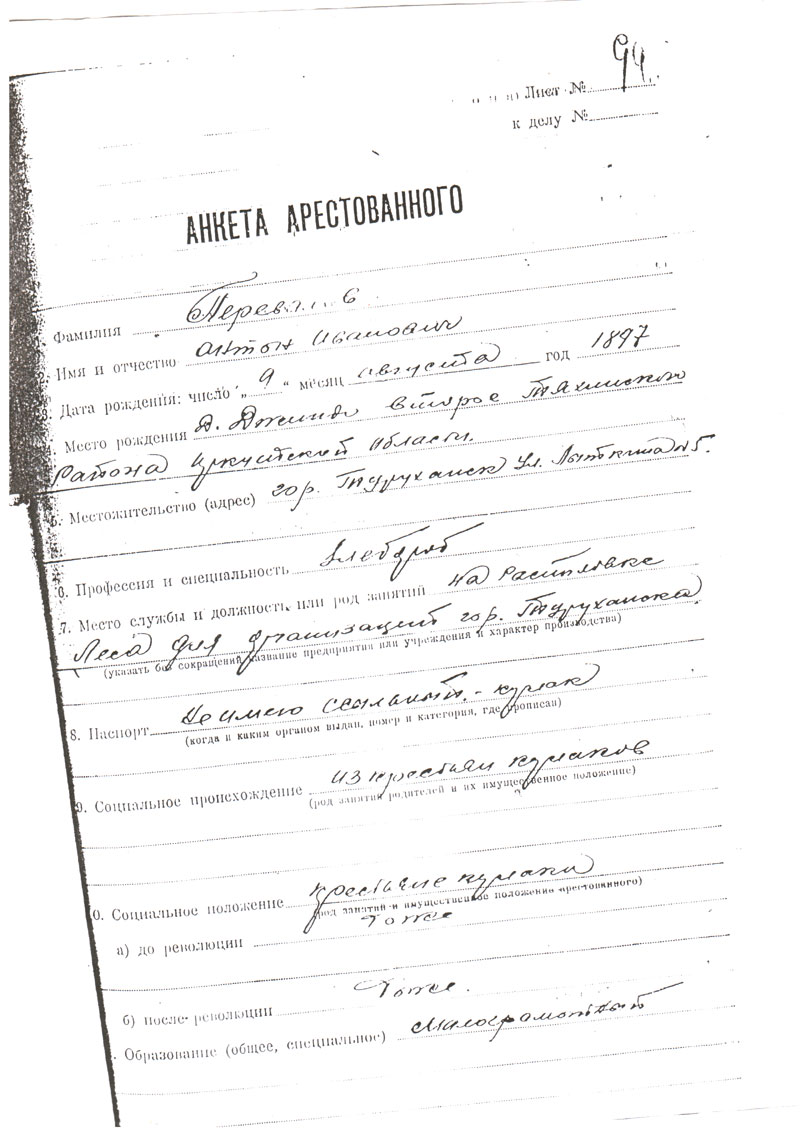 Лист № 94.
к делу №
АНКЕТА АРЕСТОВАННОГО
Фамилия
Имя и отчество Антон Иванович
Дата рождения: число „ 9 “ месяц августа год 1897
Место рождения д. второе
Района Иркутской области.
5. Местожительство (адрес) гор. Туруханск ул. Лыткина №5.
6. Профессия и специальность хлебороб
7. Место службы и должность или род занятий на распиловке
Леса для организаций гор. Туруханска
(указать без сокращений название предприятия или учреждения и характер производства)
8. Паспорт не имею ссыльный - кулак
(когда и каким органом выдан, номер и категория, где прописан)
9. Социальное происхождение из крестьян кулаков
(род занятий родителей и их имущественное положение)
0. Социальное положение крестьяне кулаки
(род занятий и имущественное положение арестованного)
а) до революции тоже
б) после революции тоже.
Образование (общее, специальное) малограмотный